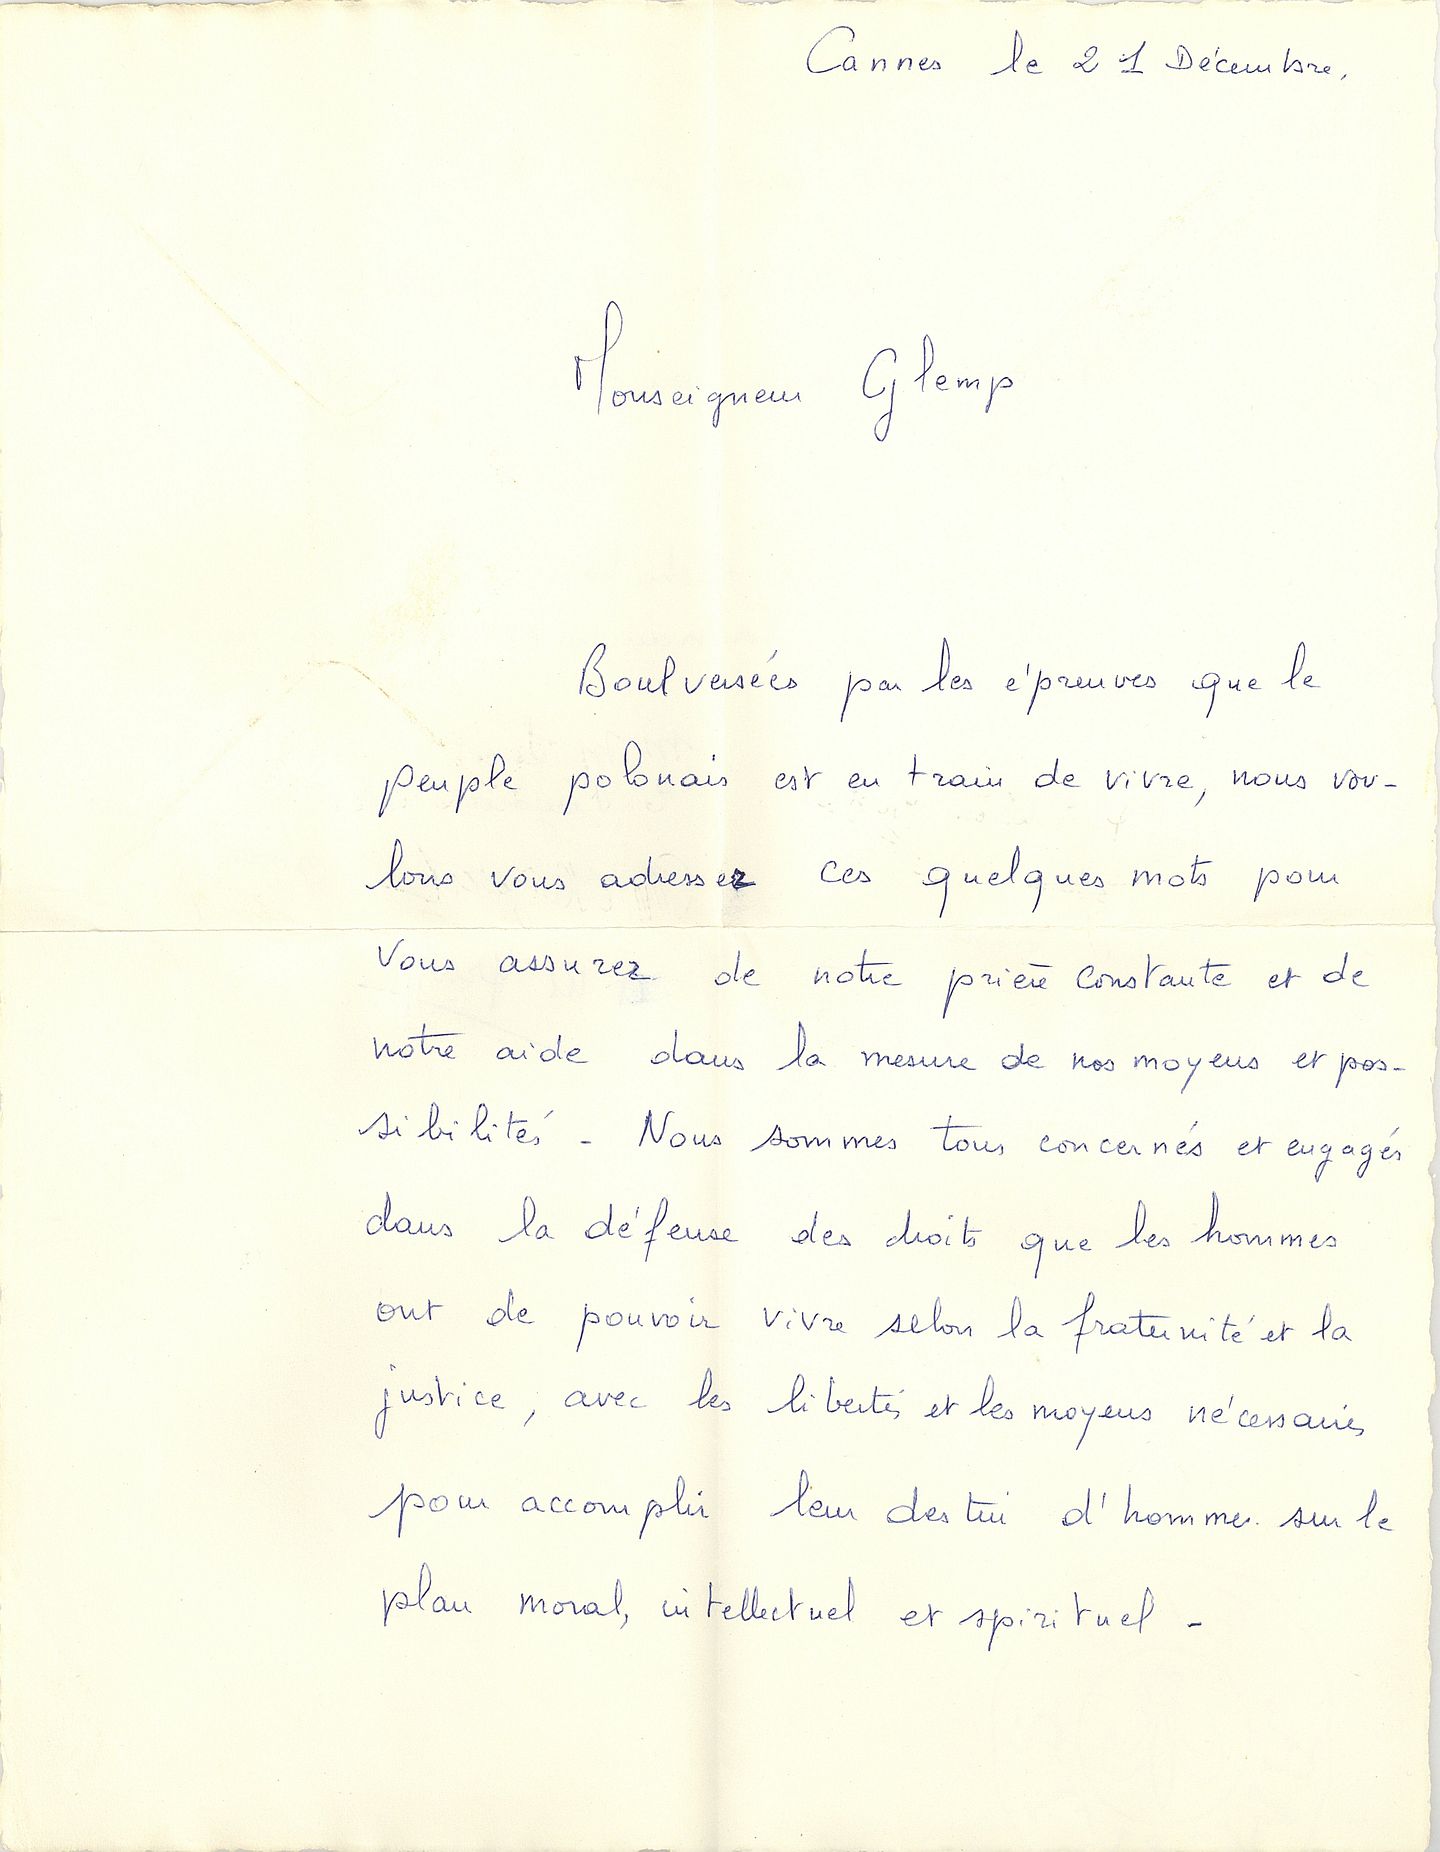 Cannes le 21 Décembre,
Monseigneur Glemp
Boulversées par les épreuves que le
peuple polonais est en train de vivre, nous vou-
lons vous adresser ces quelques mots pour
vous assurer de notre prière constante et de
notre aide dans la mesure de nos moyens et pos-
sibilités - Nous sommes tous concernés et engagés
dans la défense des droits que les hommes
ont de pouvoir vivre selon la fraternité et la
justice, avec les libertés et les moyens nécessaires
pour accomplir leur destin d'homme sur le
plan moral, intellectuel et spirituel -